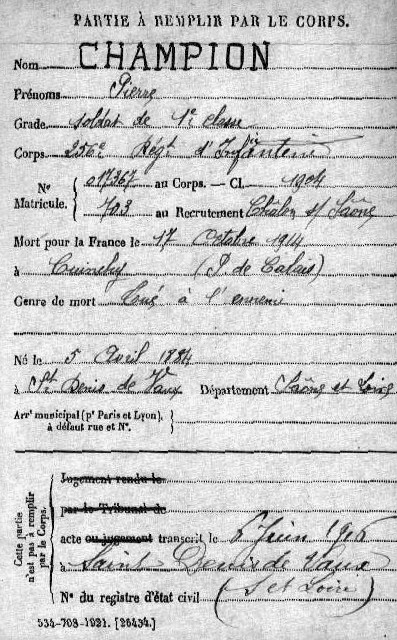 PARTIE À REMPLIR PAR LE CORPS.
Nom CHAMPION
Prénoms Pierre
Grade soldat de 1e classe
Corps 256e Régt d'Infanterie
Nos Matricule. 017367 au Corps. — Cl. 1904
703 au Recrutement Châlon s/ Saône
Mort pour la France le 17 Octobre 1914
à Cuinchy (P. de Calais)
Genre de mort Tué à l'ennemi
Né le 5 Avril 1884
à St Denis de Vaux Département Saône et Loire
Arrt municipal (pr Paris et Lyon),
à défaut rue et No.
Cette partie n'est pas à remplir par le Corps.
Jugement rendu le
par le Tribunal de
acte ou jugement transcrit le 6 Juin 1916
à Saint Denis de Vaux
(S et Loire)
No du registre d'état civil
534-708-1921. [26434.]